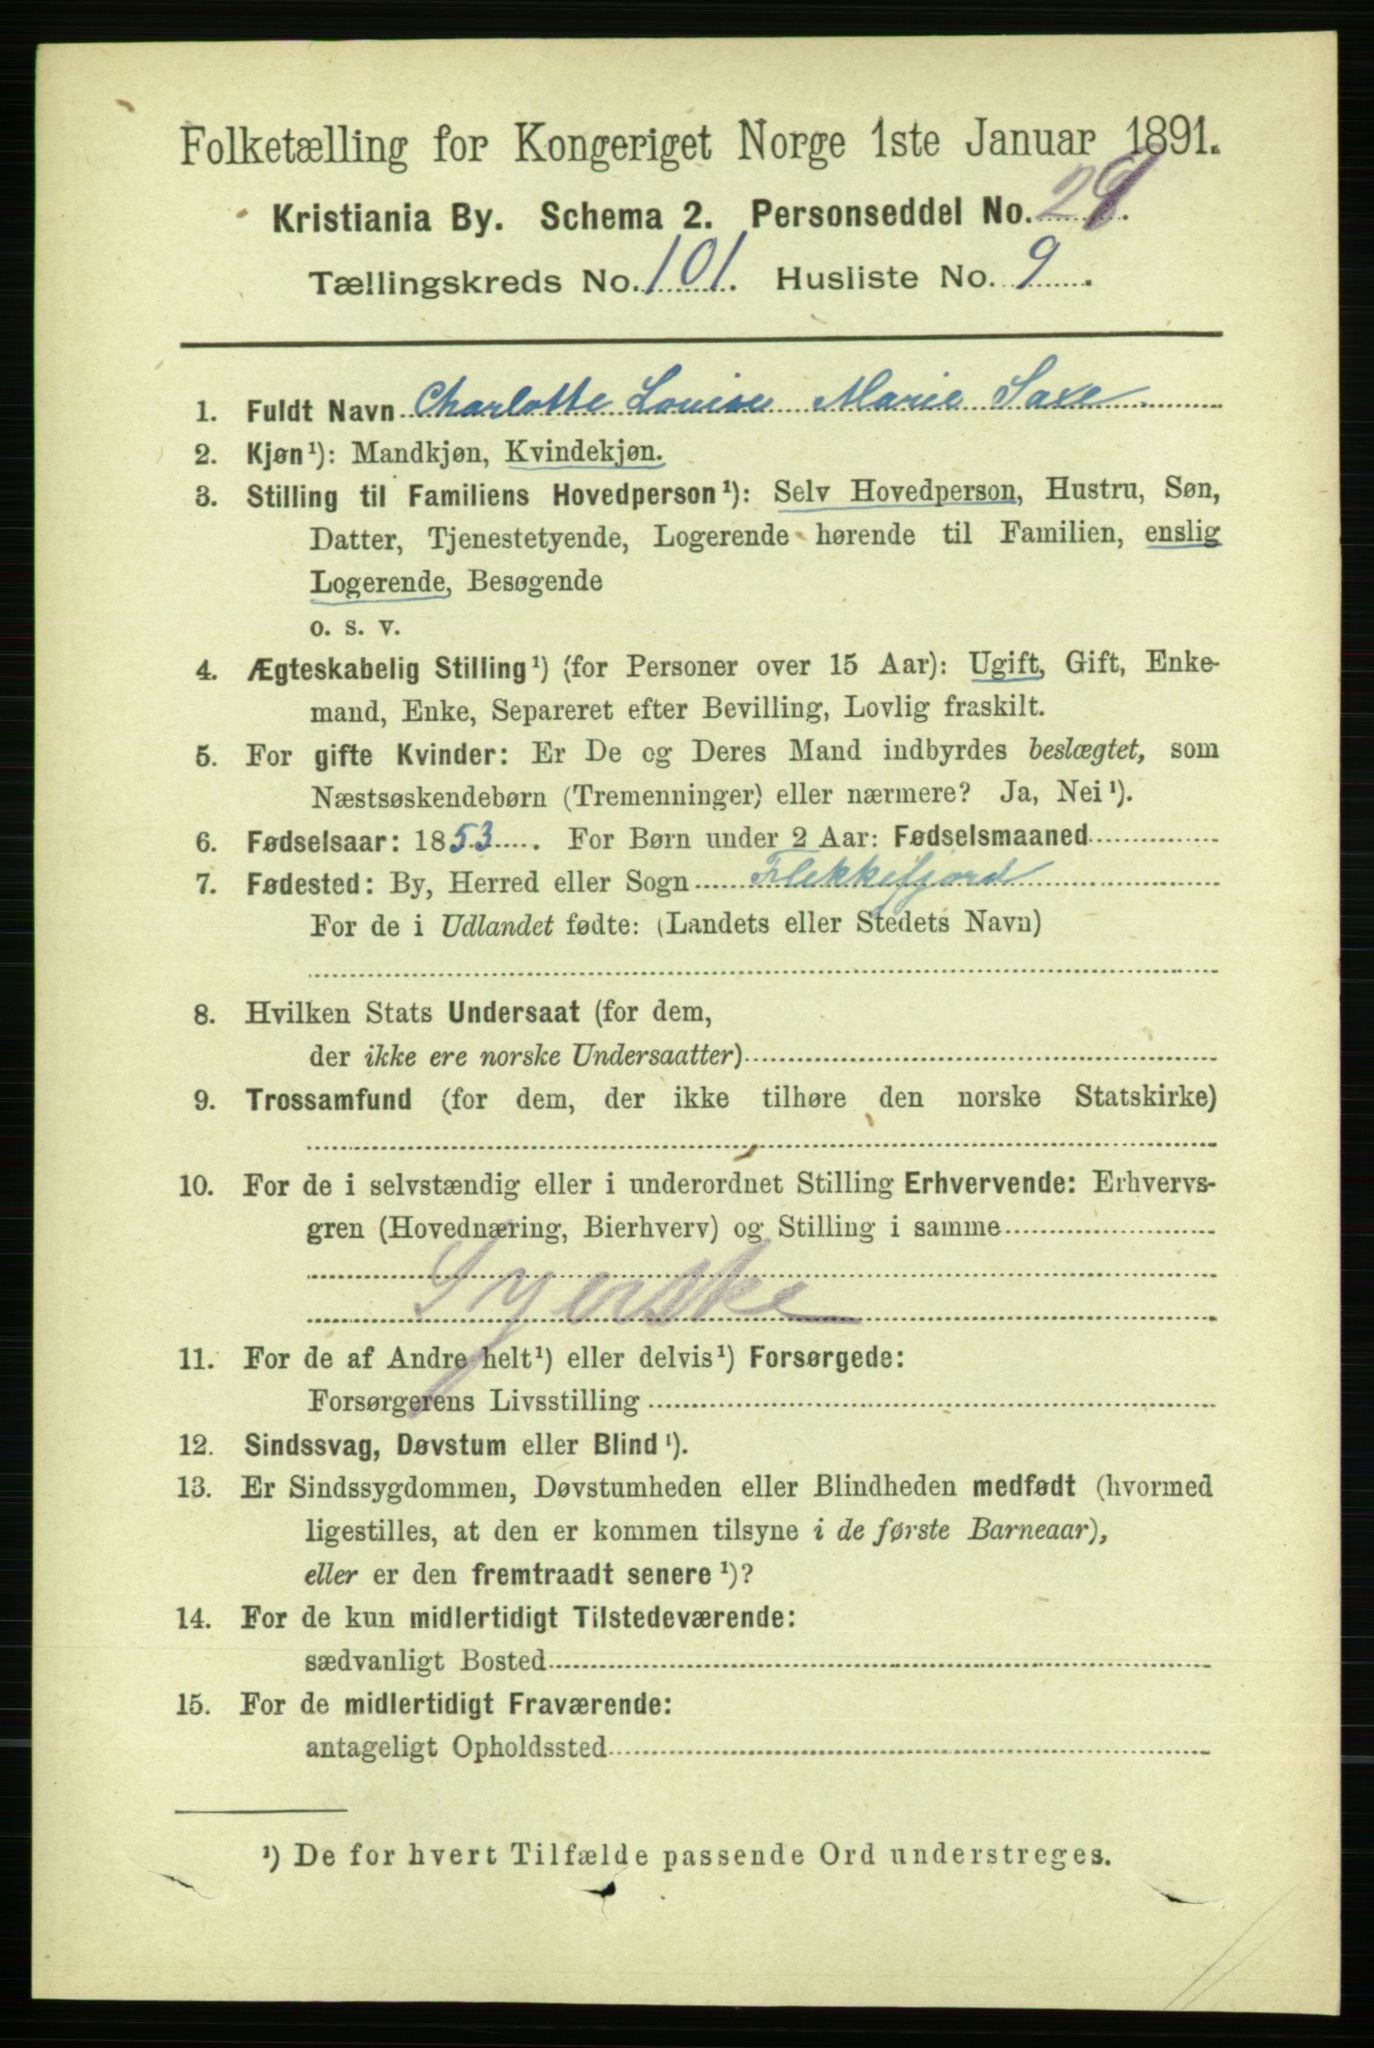 Folketælling for Kongeriget Norge 1ste Januar 1891.
Kristiania By. Schema 2. Personseddel No. 29.
Tællingskreds No. 101. Husliste No. 9.
1. Fuldt Navn Charlotte Louise Marie Saxe
2. Kjøn¹): Mandkjøn, Kvindekjøn.
3. Stilling til Familiens Hovedperson¹): Selv Hovedperson, Hustru, Søn,
Datter, Tjenestetyende, Logerende hørende til Familien, enslig
Logerende, Besøgende
o. s. v.
4. Ægteskabelig Stilling¹) (for Personer over 15 Aar): Ugift, Gift, Enke-
mand, Enke, Separeret efter Bevilling, Lovlig fraskilt.
5. For gifte Kvinder: Er De og Deres Mand indbyrdes beslægtet, som
Næstsøskendebørn (Tremenninger) eller nærmere? Ja, Nei¹).
6. Fødselsaar: 1853. For Børn under 2 Aar: Fødselsmaaned
7. Fødested: By, Herred eller Sogn Flekkefjord
For de i Udlandet fødte: (Landets eller Stedets Navn)
8. Hvilken Stats Undersaat (for dem,
der ikke ere norske Undersaatter)
9. Trossamfund (for dem, der ikke tilhøre den norske Statskirke)
10. For de i selvstændig eller i underordnet Stilling Erhvervende: Erhvervs-
gren (Hovednæring, Bierhverv) og Stilling i samme
Syerske
11. For de af Andre helt¹) eller delvis¹) Forsørgede:
Forsørgerens Livsstilling
12. Sindssvag, Døvstum eller Blind¹).
13. Er Sindssygdommen, Døvstumheden eller Blindheden medfødt (hvormed
ligestilles, at den er kommen tilsyne i de første Barneaar),
eller er den fremtraadt senere¹)?
14. For de kun midlertidigt Tilstedeværende:
sædvanligt Bosted
15. For de midlertidigt Fraværende:
antageligt Opholdssted
¹) De for hvert Tilfælde passende Ord understreges.